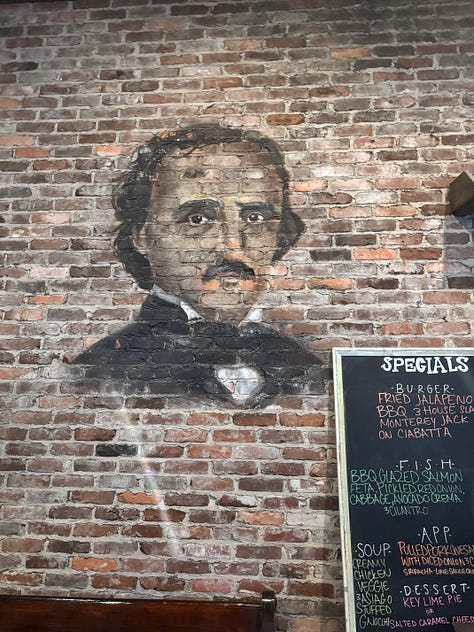 SPECIALS
-BURGER-
FRIED JALAPENO
BBQ 3 HOUSE
MONTEREY JACK
ON CIABATTA
-FISH-
BBQ GLAZED SALMON
FETA, PICKLED RED ONION
CABBAGE, AVOCADO CREMA
3 CILANTRO
-APP-
PULLED PORK
WITH DICED ONION 3
-SOUP-
CREAMY
CHICKEN
VEGGIE
3 ASIAGO
STUFFED
GNOCHI
-DESSERT-
KEY LIME PIE
OR
SALTED CARAMEL